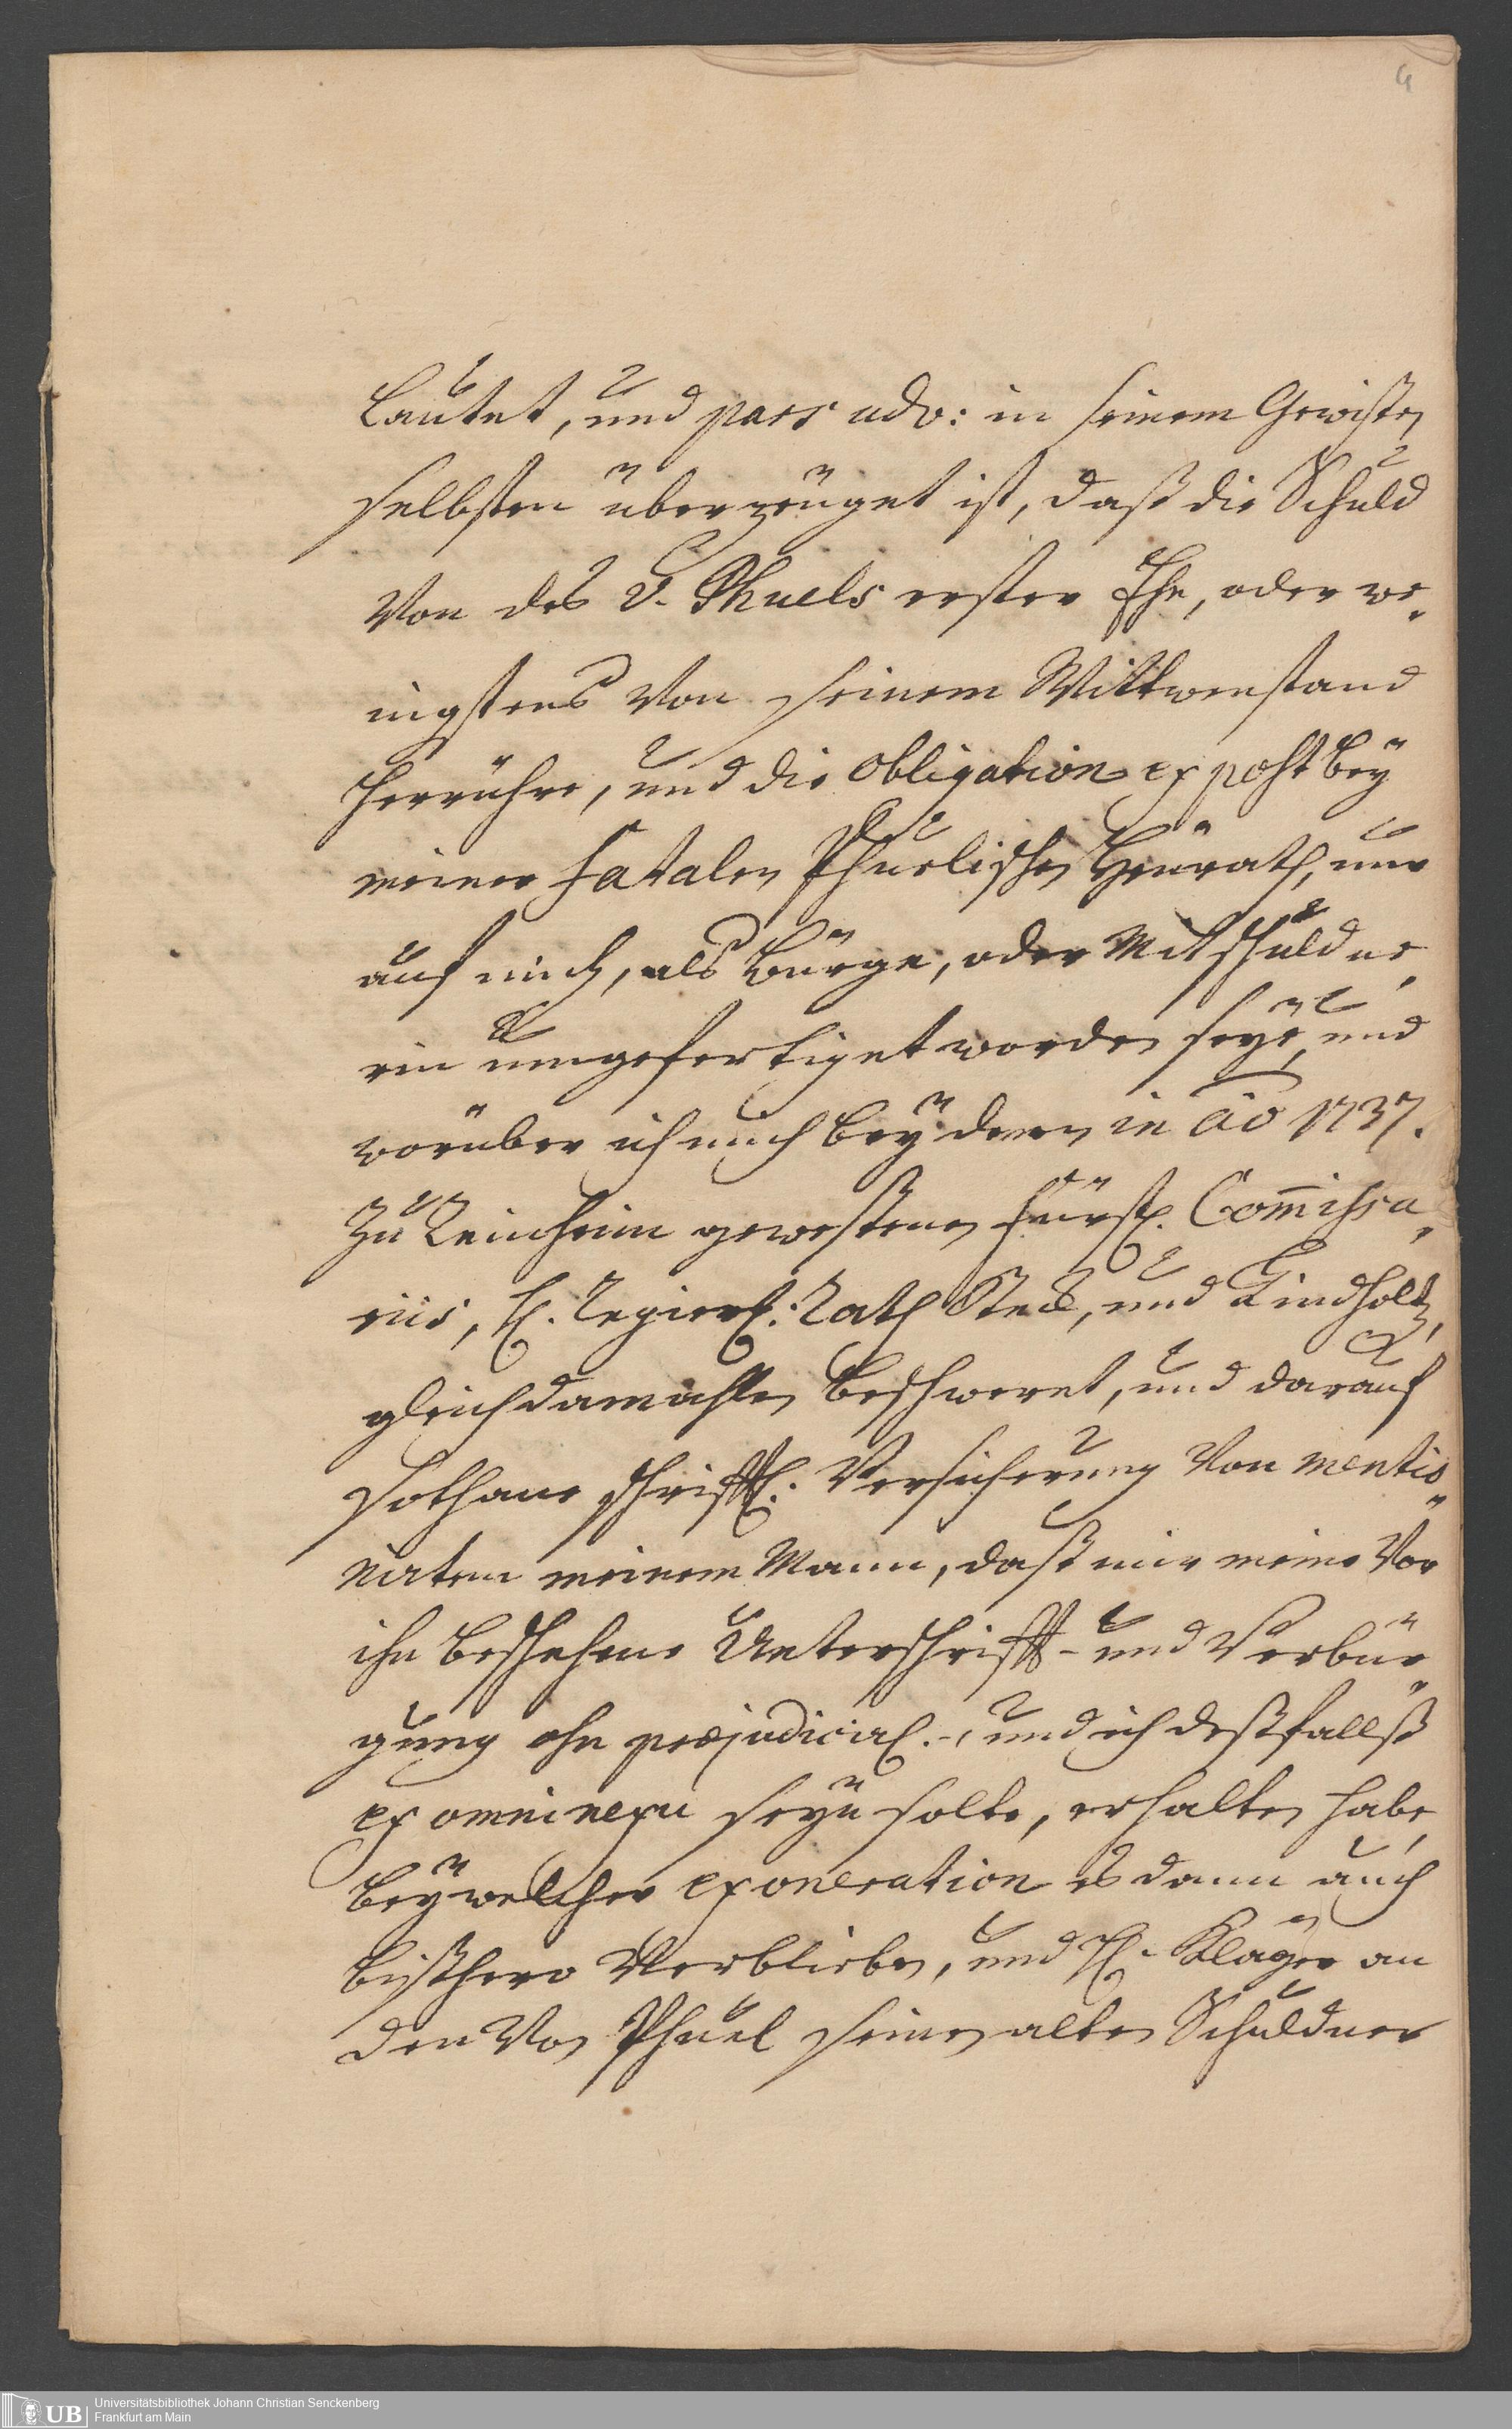 4
Lautet, und pars adv: in seinem Gewißen
selbsten überzeuget ist, daß die Schuld
von des v. Phuels erster Ehe, oder we-
nigstens von seinem Wittwenstand
herrühre, und die obligation ex post bey
meiner fatalen Phuelischen Heurath, nur
auf mich, als Bürge, oder Mitschuldne-
rin umgefertiget worden seye, und
worüber ich mich bey denen in ao 1737.
zu Leinheim gewesenen fürstl. Commissa-
riis, H. Regier: Rath und Lindholtz,
gleich damahlen beschweret, und darauf
sothane schrifftl. Versicherung von mentio-
nirtem meinem Mann, daß mir meine vor
ihn beschehene Unterschrifft- und Verbür-
gung ohn præjudicirl. -, und ich deßfallß
ex omni nexu seyn solte, erhalten habe,
bey welcher exoneration es dann auch
bißhero verblieben, und H. Kläger an
den von Phuel seinen alten Schuldner
UB
Universitätsbibliothek Johann Christian Senckenberg
Frankfurt am Main